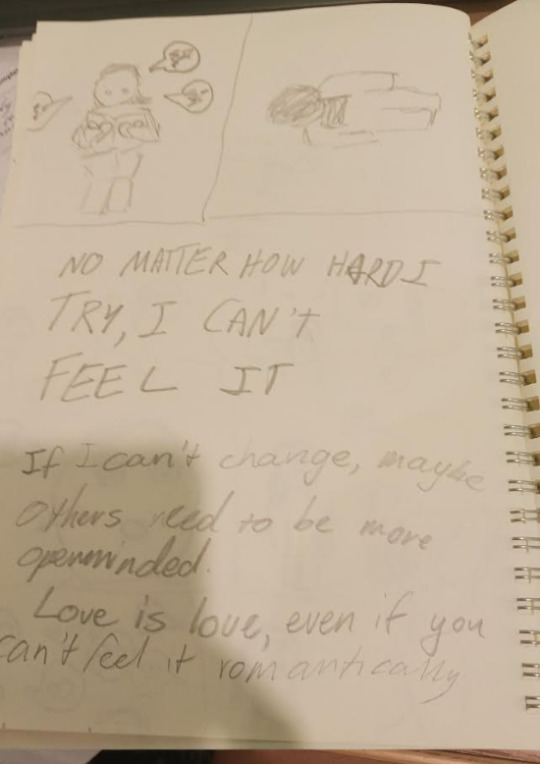 NO MATTER HOW HARD I
TRY, I CAN'T
FEEL IT
If I can't change, maybe
others need to be more
openminded.
Love is love, even if you
can't feel it romantically